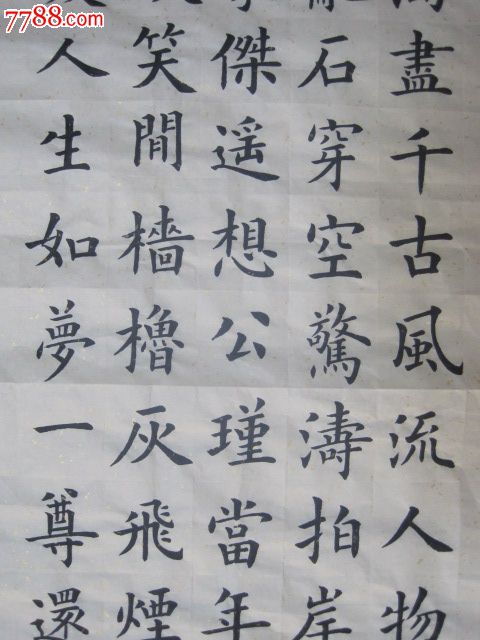 7788.com
盡千古風流人物
石穿空驚濤拍岸
傑遥想公瑾當年
笑間檣櫓灰飛煙
人生如夢一尊還